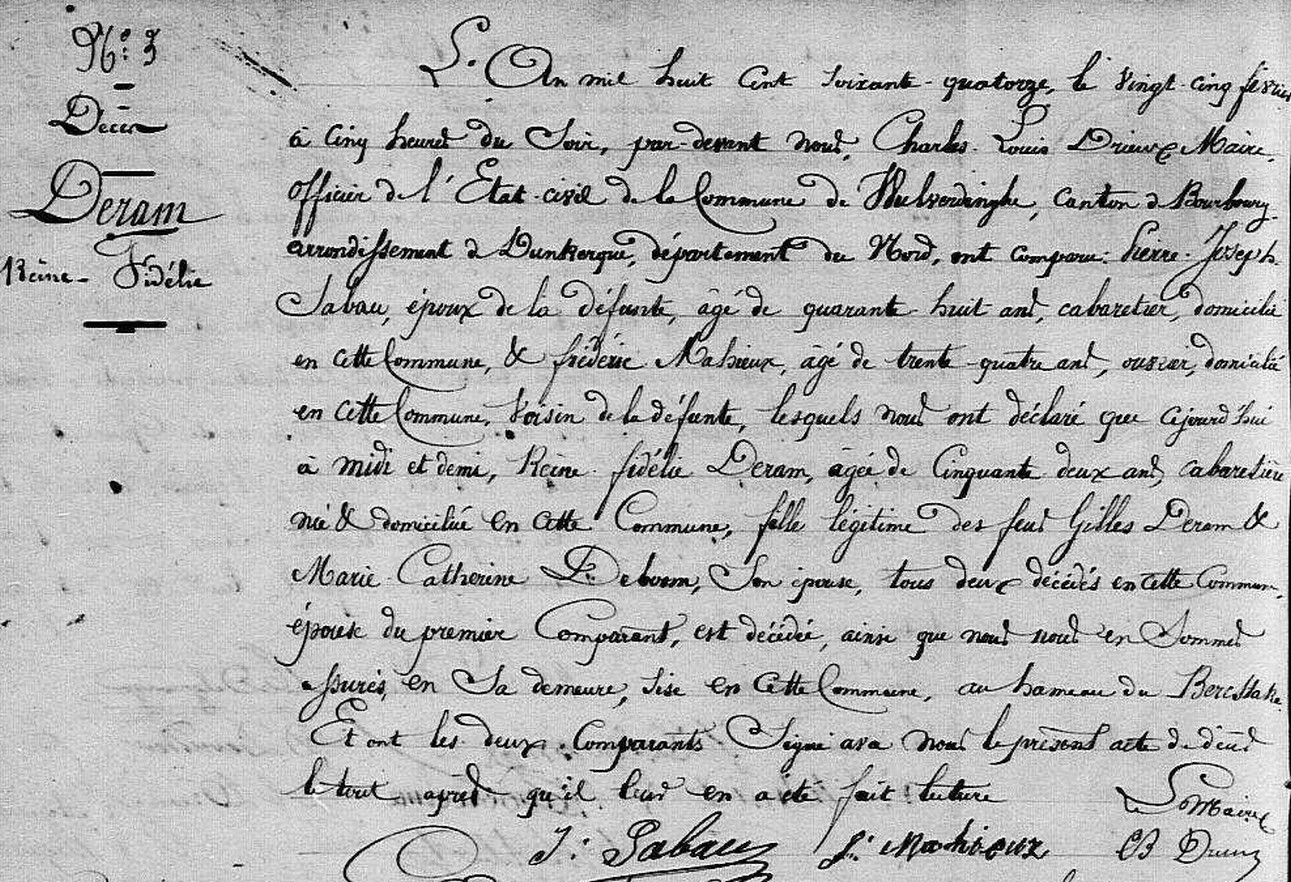 N° 3
Décès
Deram
Reine-Fidélie
L'An mil huit cent soixante-quatorze, le vingt-cinq février
à cinq heures du soir, par-devant nous, Charles Louis Drieux Maire,
officier de l'Etat-civil de la Commune de Wulverdinghe, canton de Bourbourg
arrondissement de Dunkerque, département du Nord, ont comparu: Pierre-Joseph
Sabau, époux de la défunte, âgé de quarante-huit ans, cabaretier, domicilié
en cette Commune, & frédéric Mahieux, âgé de trente-quatre ans, ouvrier, domicilié
en cette Commune, voisin de la défunte, lesquels nous ont déclaré que cejourd'hui
à midi et demi, Reine-fidélie Deram, âgée de cinquante deux ans, cabaretière
née & domiciliée en cette Commune, fille légitime des feus Gilles Deram &
Marie-Catherine Deboom, son épouse, tous deux décédés en cette Commune,
épouse du premier Comparant, est décédée, ainsi que nous nous en sommes
assurés, en sa demeure, sise en cette Commune, au hameau du
Et ont les deux Comparants signé avec nous le présent acte de décès
le tout après qu'il leur en a été fait lecture
Le Maire
J. Sabau f. Mahieux